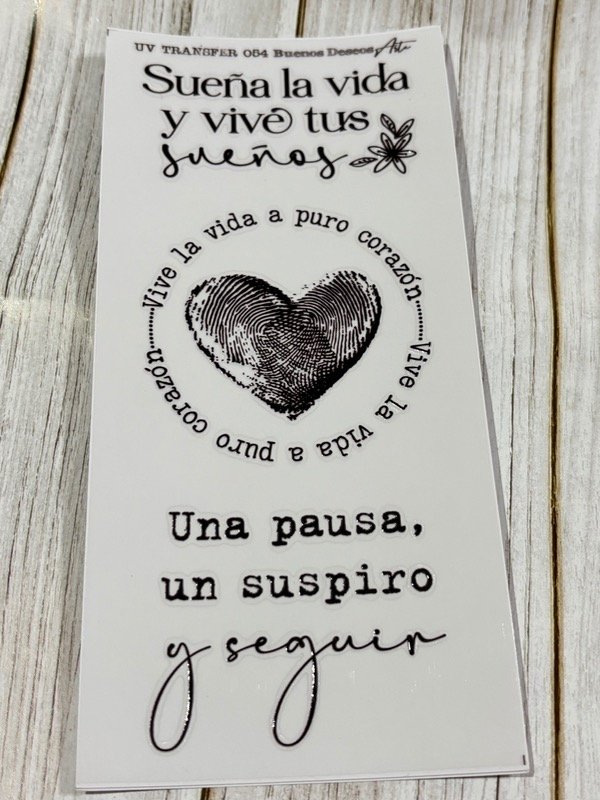 UV TRANSFER 054 Buenos Deseos Arte
Sueña la vida
y vive tus
sueños
Vive la vida a puro corazón........
Vive la vida a puro corazón........
Una pausa,
un suspiro
y seguir